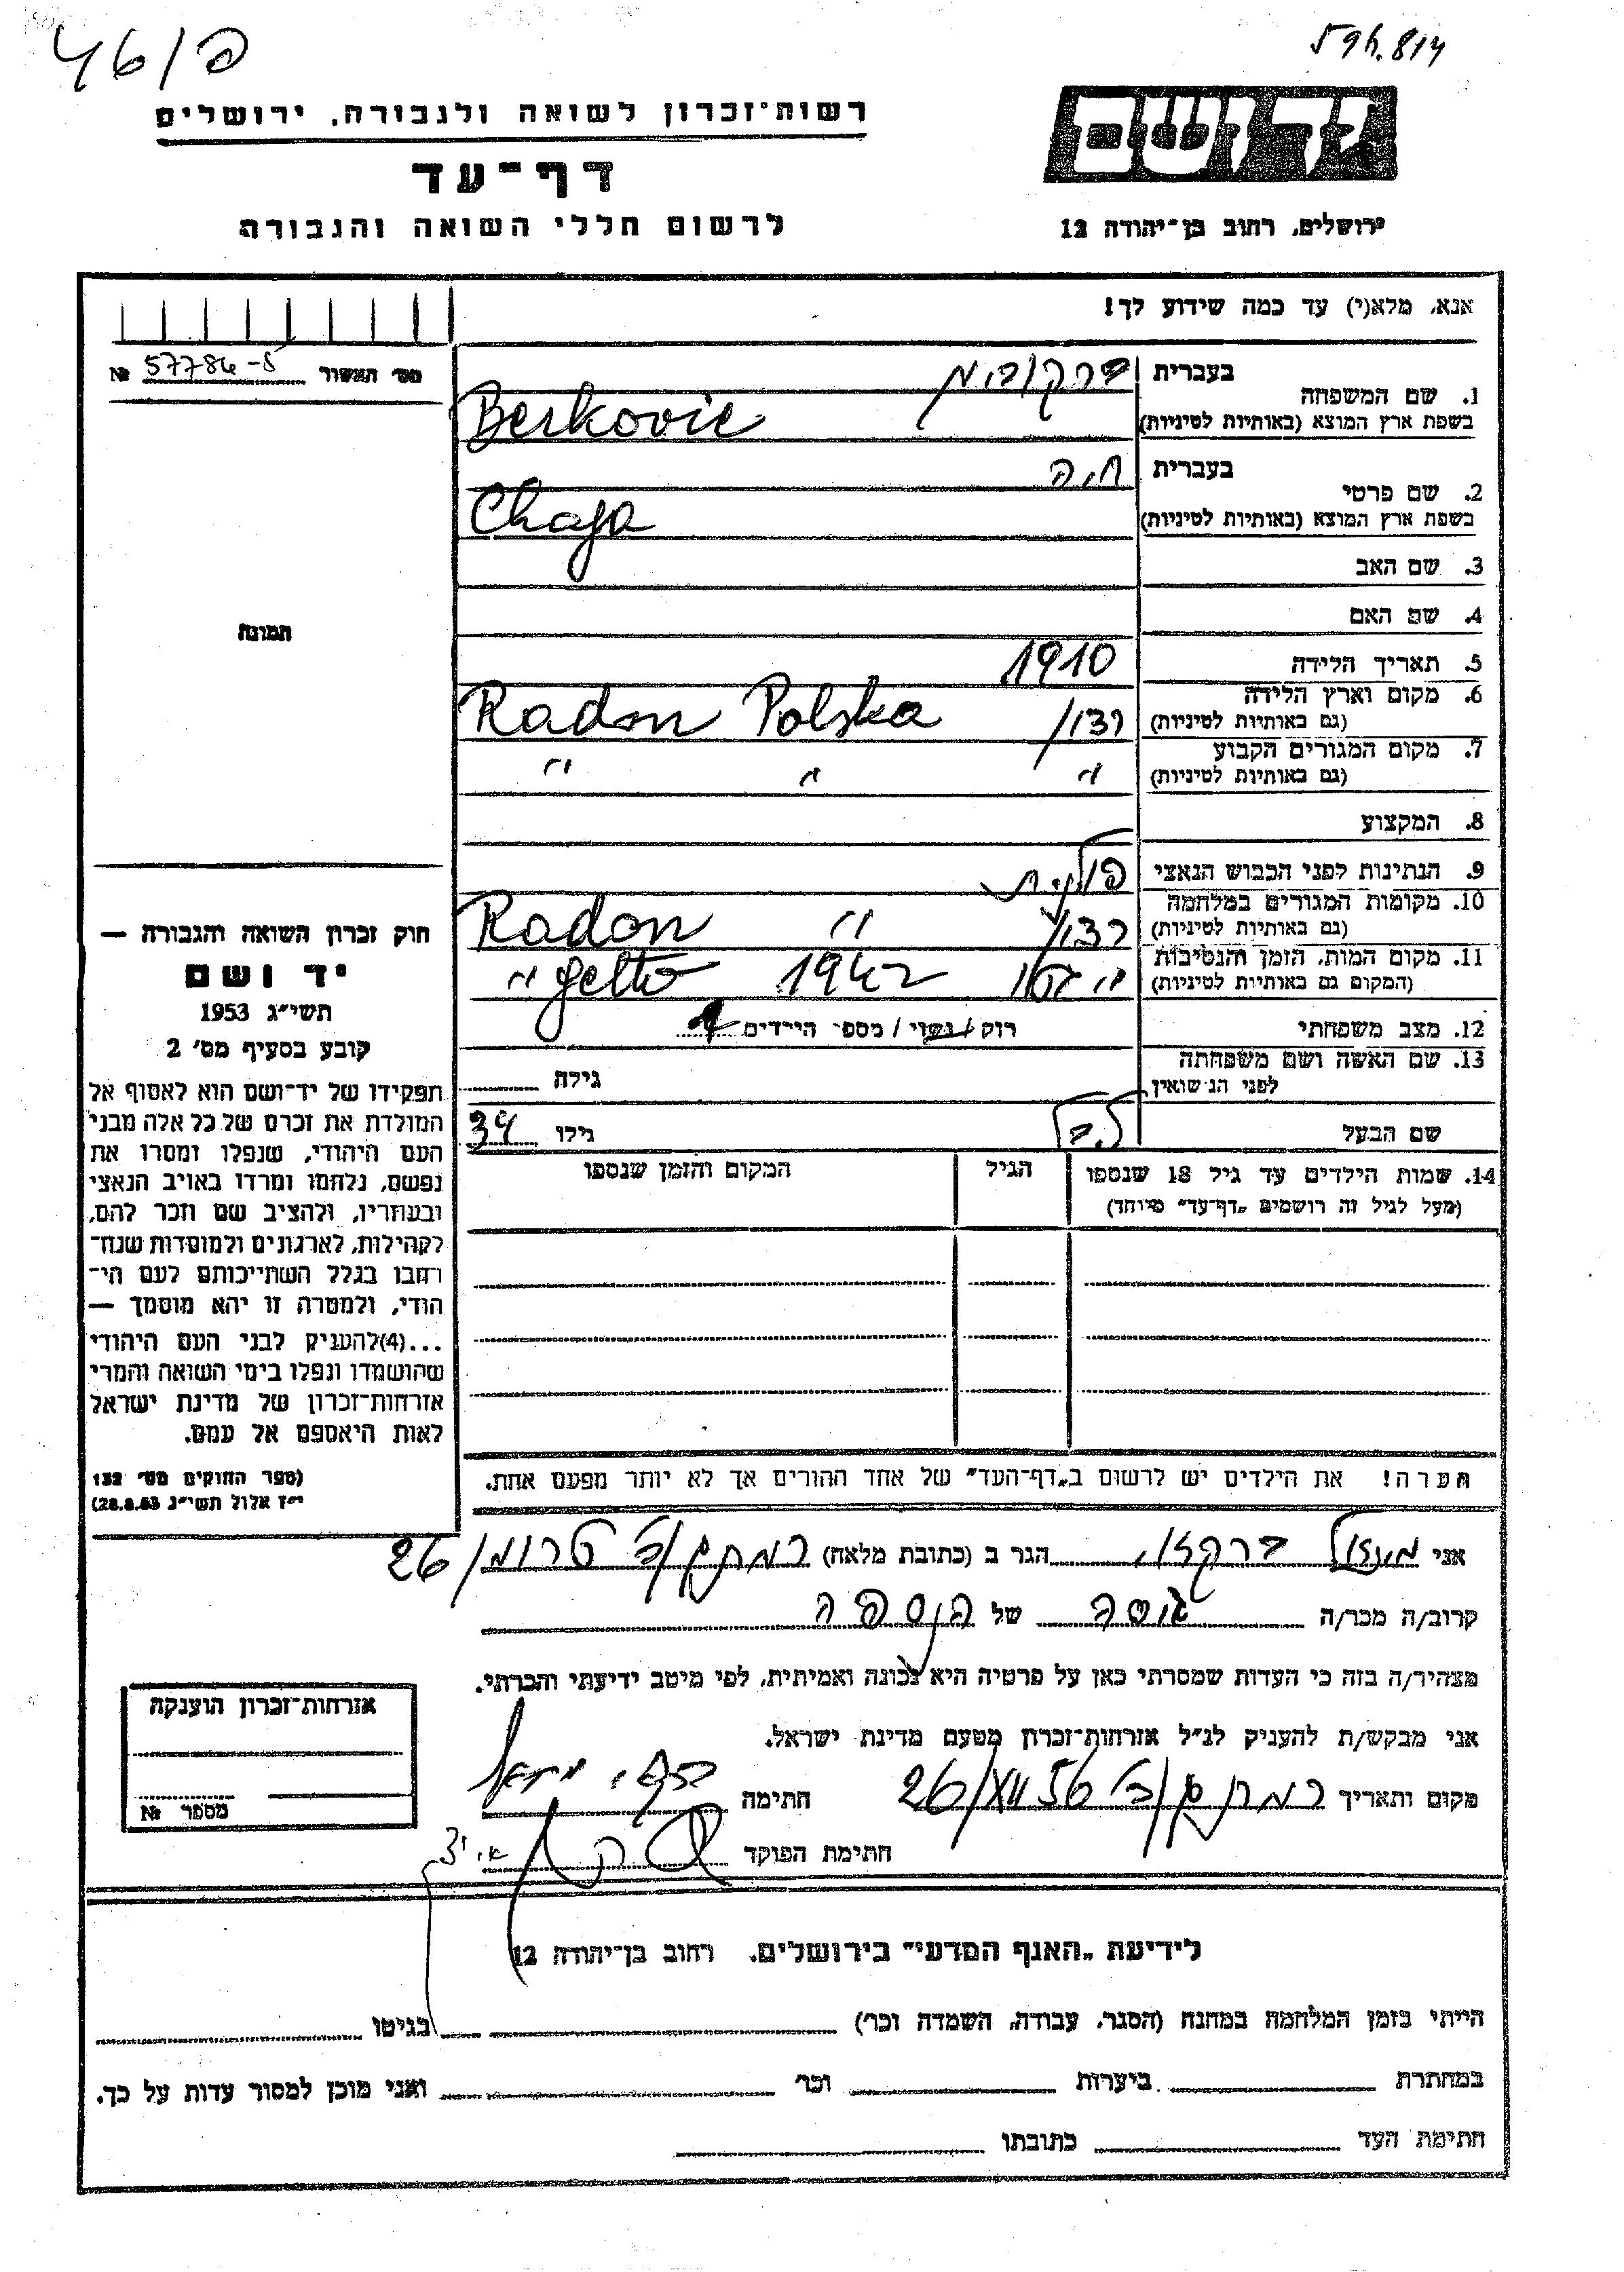 46/פ
596.814
רשות־זכרון לשואה ולגבורה, ירושלים
יד ושם
דף־עד
לרשום חללי השואה והגבורה
ירושלים, רחוב בן־יהודה 12
אנא, מלא(י) עד כמה שידוע לך!
מס׳ האשור 57786-5 №
1. שם המשפחה בעברית ברקוביץ
בשפת ארץ המוצא (באותיות לטיניות) Berkovic
2. שם פרטי בעברית חיה
בשפת ארץ המוצא (באותיות לטיניות) Chaja
3. שם האב
4. שם האם
תמונה
5. תאריך הלידה 1910
6. מקום וארץ הלידה (גם באותיות לטיניות) רדון Radon Polska
7. מקום המגורים הקבוע (גם באותיות לטיניות) " " "
8. המקצוע
9. הנתינות לפני הכבוש הנאצי פולנית
10. מקומות המגורים במלחמה (גם באותיות לטיניות) רדון " Radon
11. מקום המות, הזמן והנסיבות (המקום גם באותיות לטיניות) " גטו 1942 getto "
12. מצב משפחתי רווק/נשוי/מספר הילדים
13. שם האשה ושם משפחתה לפני הנישואין גילה
שם הבעל גילו 34
14. שמות הילדים עד גיל 18 שנספו הגיל המקום והזמן שנספו
(מעל לגיל זה רושמים „דף־עד״ מיוחד)
הערה! את הילדים יש לרשום ב„דף־העד״ של אחד ההורים אך לא יותר מפעם אחת.
חוק זכרון השואה והגבורה —
יד ושם
תשי״ג 1953
קובע בסעיף מס׳ 2
תפקידו של יד־ושם הוא לאסוף אל
המולדת את זכרם של כל אלה מבני
העם היהודי, שנפלו ומסרו את
נפשם, נלחמו ומרדו באויב הנאצי
ובעוזריו, ולהציב שם וזכר להם,
לקהילות, לארגונים ולמוסדות שנח־
רחבו בגלל השתייכותם לעם הי־
הודי, ולמטרה זו יהא מוסמך —
...(4)להעניק לבני העם היהודי
שהושמדו ונפלו בימי השואה והמרי
אזרחות־זכרון של מדינת ישראל
לאות היאספם אל עמם.
(ספר החוקים מס׳ 132
י״ז אלול תשי״ג 28.8.53)
אני הגר ב (כתובת מלאה) רמת גן 26
קרוב/ה מכר/ה גיסה של הנספה
מצהיר/ה בזה כי העדות שמסרתי כאן על פרטיה היא נכונה ואמיתית, לפי מיטב ידיעתי והכרתי.
אני מבקש/ת להעניק לנ״ל אזרחות־זכרון מטעם מדינת ישראל.
מקום ותאריך רמת גן 26/XII 56 חתימה
חתימת הפוקד
אזרחות־זכרון הוענקה
מספר №
לידיעת „האגף המדעי״ בירושלים. רחוב בן־יהודה 12
הייתי בזמן המלחמה במחנה (הסגר, עבודה, השמדה וכו׳) בגיטו
במחתרת ביערות וכו׳ ואני מוכן למסור עדות על כך.
חתימת העד כתובתו